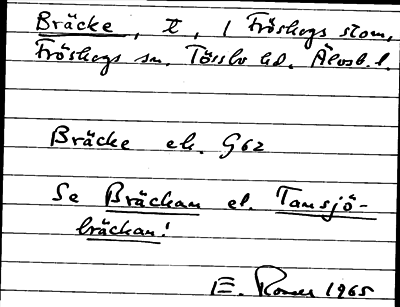 Bräcke, t, i Fröskogs stom,
Fröskogs sn. Tössbo hd. Älvsb. l.
Bräcke ek. G62
Se Bräckan el. Tansjö-
bräckan!
E. 1965